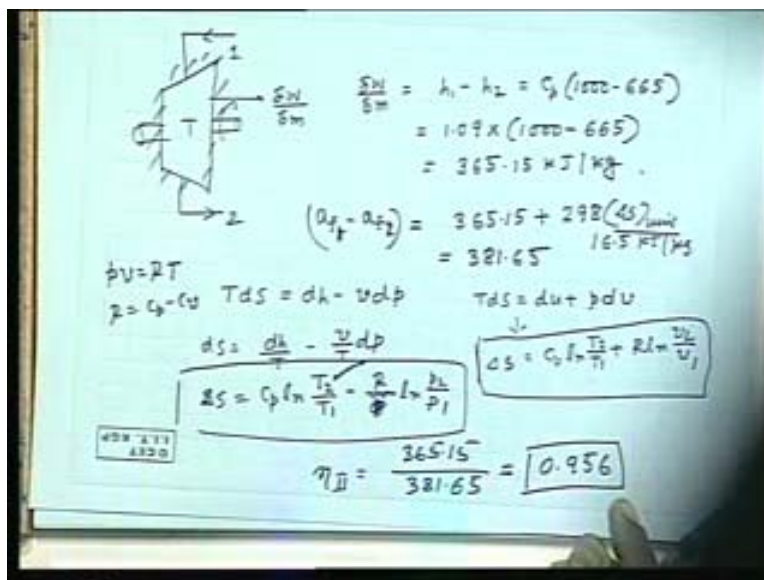 1
T
δW/δm
2
δW/δm = h₁ - h₂ = Cp (1000 - 665)
= 1.09 × (1000 - 665)
= 365.15 KJ/kg.
(af₁ - af₂) = 365.15 + 298 (ΔS)univ
16.5 KJ/kg
= 381.65
pv = RT
R = Cp - Cv
Tds = dh - vdp
Tds = du + pdv
ds = dh/T - v/T dp
ΔS = Cv ln T₂/T₁ + R ln v₂/v₁
ΔS = Cp ln T₂/T₁ - R ln p₂/p₁
© CET
I.I.T. KGP
ηII = 365.15/381.65 = 0.956